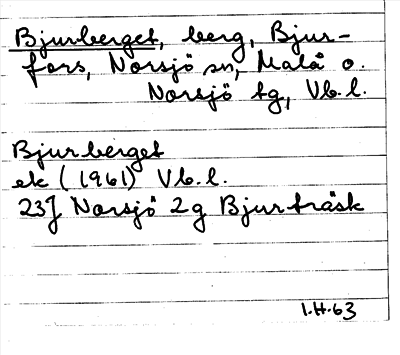 Bjurberget, berg, Bjur-
fors, Norsjö sn, Malå o.
Norsjö tg, Vb. l.
Bjurberget
ek (1961) Vb. l.
23J Norsjö 2g Bjurträsk
I.H. 63